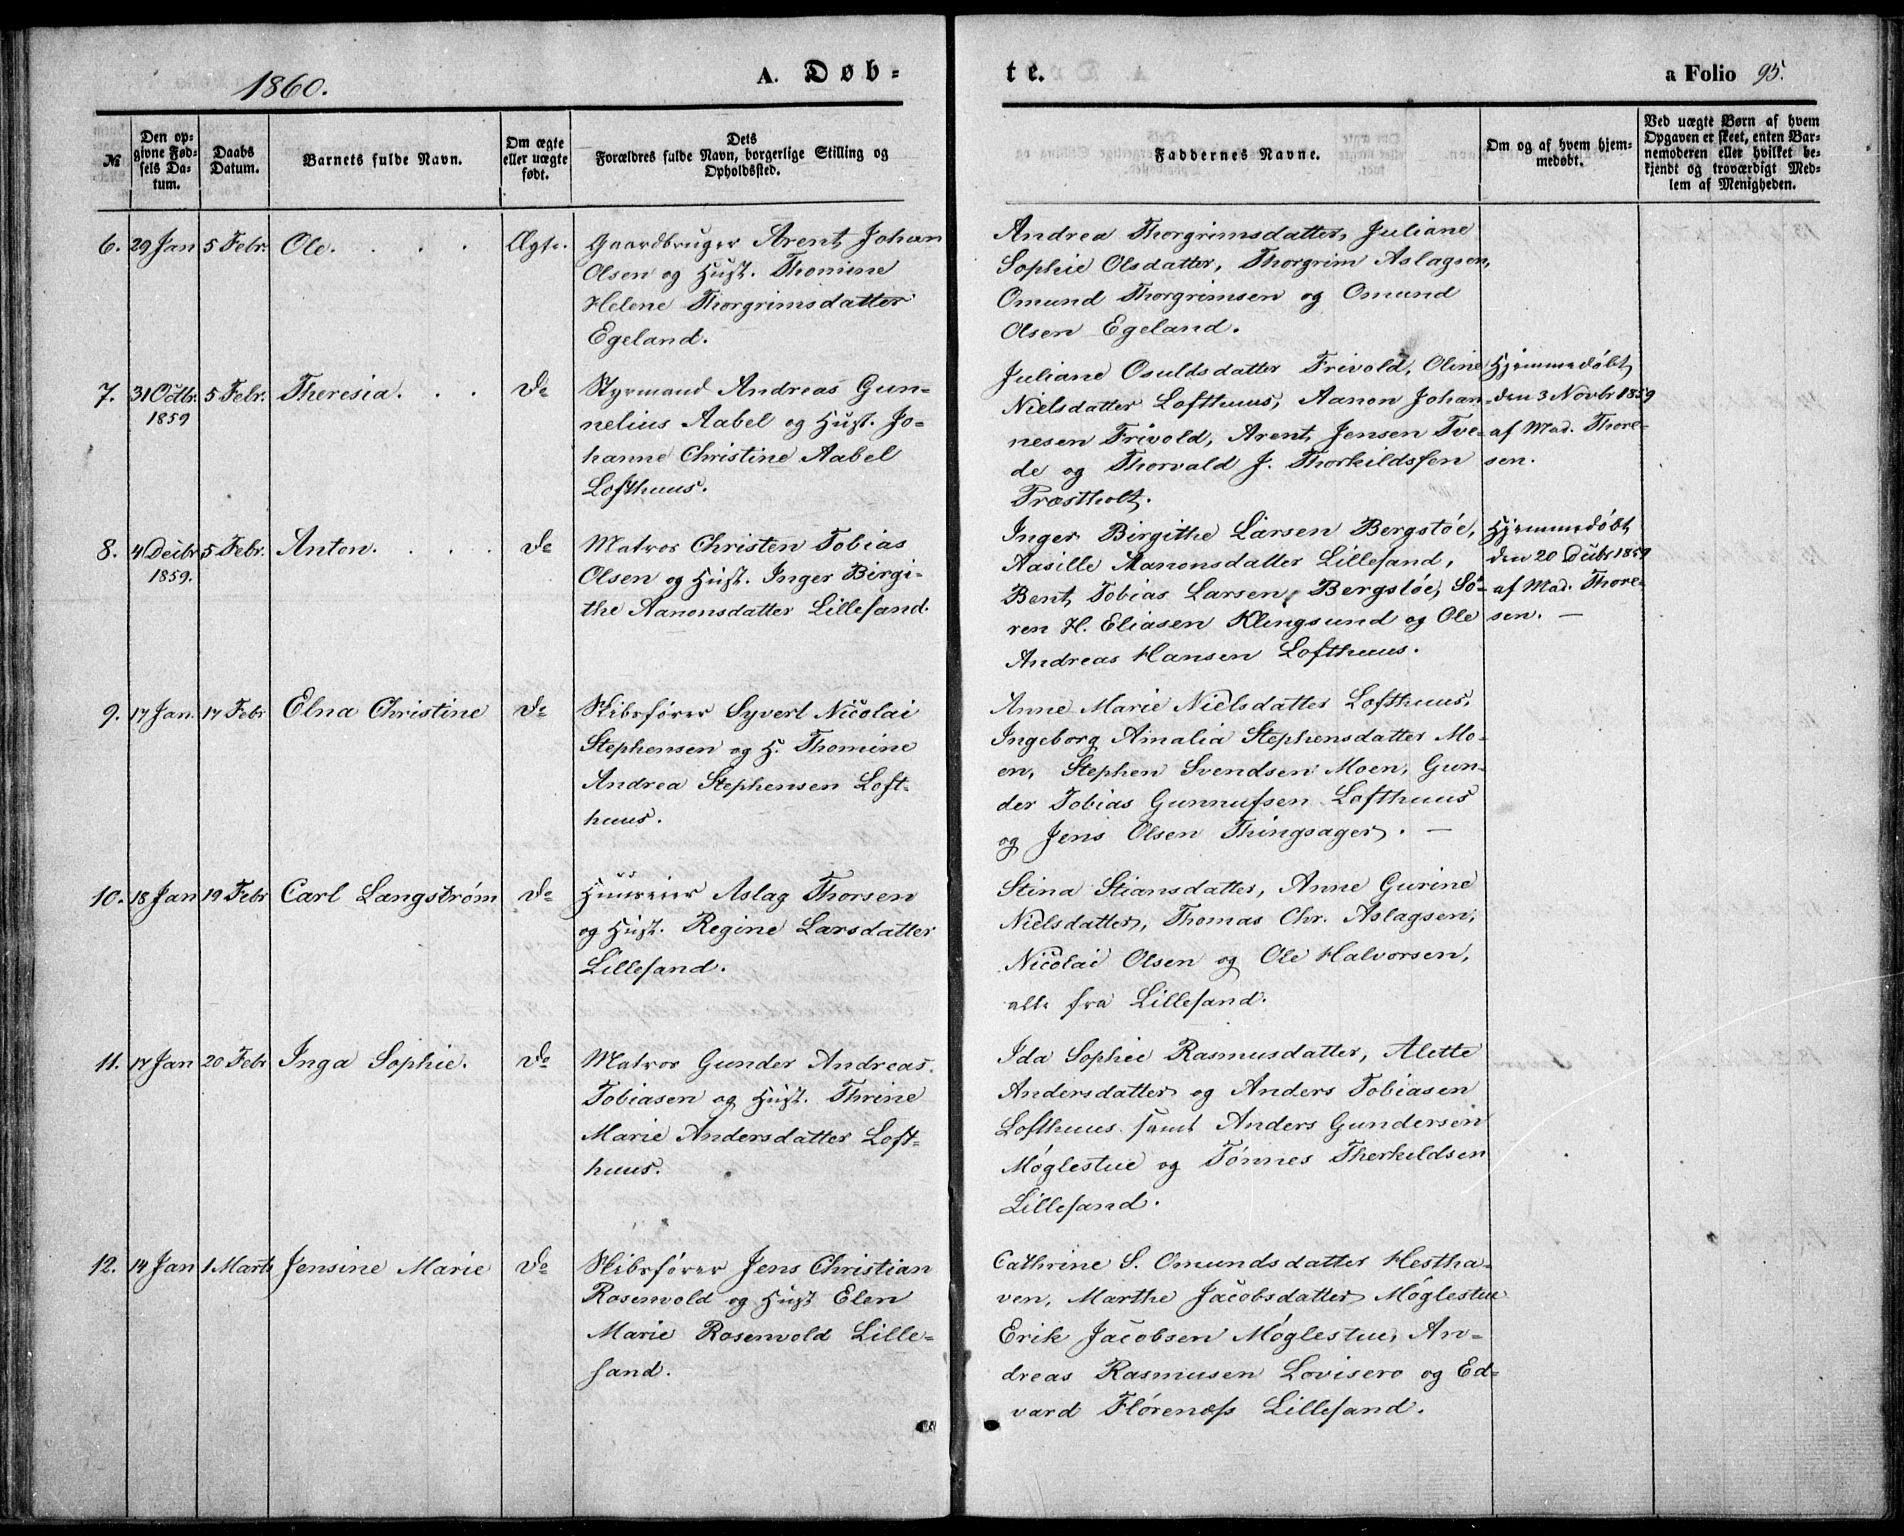 1860.
A. Døb-
te.
a Folio 95.
№
Den op-
givne Fød-
sels Da-
tum.
Daabs
Datum.
Barnets fulde Navn.
Om ægte
eller uægte
født.
Dets
Forældres fulde Navn, borgerlige Stilling og
Opholdssted.
Faddernes Navne.
Om og af hvem hjem-
medøbt.
Ved uægte Børn af hvem
Opgaven er skeet, enten Bar-
nemoderen eller hvilket be-
kjendt og troværdigt Med-
lem af Menigheden.
6. 29 Jan 5 Febr. Ole. Ægte. Gaardbruger Arent Johan
Olsen og Hust. Thomine
Helene Thorgrimsdatter
Egeland.
Andrea Thorgrimsdatter, Juliane
Sophie Olsdatter, Thorgrim Aslagsen,
Omund Thorgrimsen og Omund
Olsen Egeland.
7. 31 Octbr. 5 Febr. Theresia. Do Styrmand Andreas Gun-
1859
nelius Aabel og Hust. Jo-
hanne Christine Aabel
Lofthuus.
Juliane Osuldsdatter Frivold, Oline
Nielsdatter Lofthuus, Aanon Johan-
nesen Frivold, Arent Jensen Tve-
de og Thorvald J. Thorkildssen
Præstholt.
Hjemmedøbt
den 3 Novbr 1859
af Mad. Thore-
sen.
8. 4 Decbr 5 Febr. Anton. Do Matros Christen Tobias
1859.
Olsen og Hust. Inger Birgi-
the Aanonsdatter Lillesand.
Inger Birgithe Larsen Bergstøe,
Aasille Aanonsdatter Lillesand,
Bent Tobias Larsen, Bergstøe, Sö-
ren H. Eliasen Klingsund og Ole
Andreas Hansen Lofthuus.
Hjemmedøbt
den 20 Decbr 1859
af Mad. Thore-
sen. —
9. 17 Jan. 17 Febr Elna Christine Do Skibsfører Syvert Nicolai
Stephensen og H. Thomine
Andrea Stephensen Loft-
huus.
Anne Marie Nielsdatter Lofthuus,
Ingeborg Amalia Stephensdatter Mo-
en, Stephen Svendsen Moen, Gun-
der Tobias Gunnufsen Lofthuus
og Jens Olsen Thingsager. —
10. 18 Jan 19 Febr Carl Langstrøm Do Huuseier Aslag Thorsen
og Hust. Regine Larsdatter
Lillesand.
Stina Stiansdatter, Anne Gurine
Nielsdatter, Thomas Chr. Aslagsen,
Nicolai Olsen og Ole Halvorsen,
alle fra Lillesand.
11. 17 Jan 20 Febr Inga Sophie. Do Matros Gunder Andreas
Tobiasen og Hust. Thrine
Marie Andersdatter Loft-
huus.
Ida Sophie Rasmusdatter, Alette
Andersdatter og Anders Tobiasen
Lofthuus samt Anders Gundersen
Møglestue og Tønnes Therkildsen
Lillesand.
12. 14 Jan 1. Marts Jensine Marie Do Skibsfører Jens Christian
Rosenvold og Hust Elen
Marie Rosenvold Lille-
sand.
Cathrine S. Omundsdatter Hestha-
ven, Marthe Jacobsdatter Møglestue
Erik Jacobsen Møglestue, An-
dreas Rasmusen Lovisero og Ed-
vard Flørenæss Lillesand.